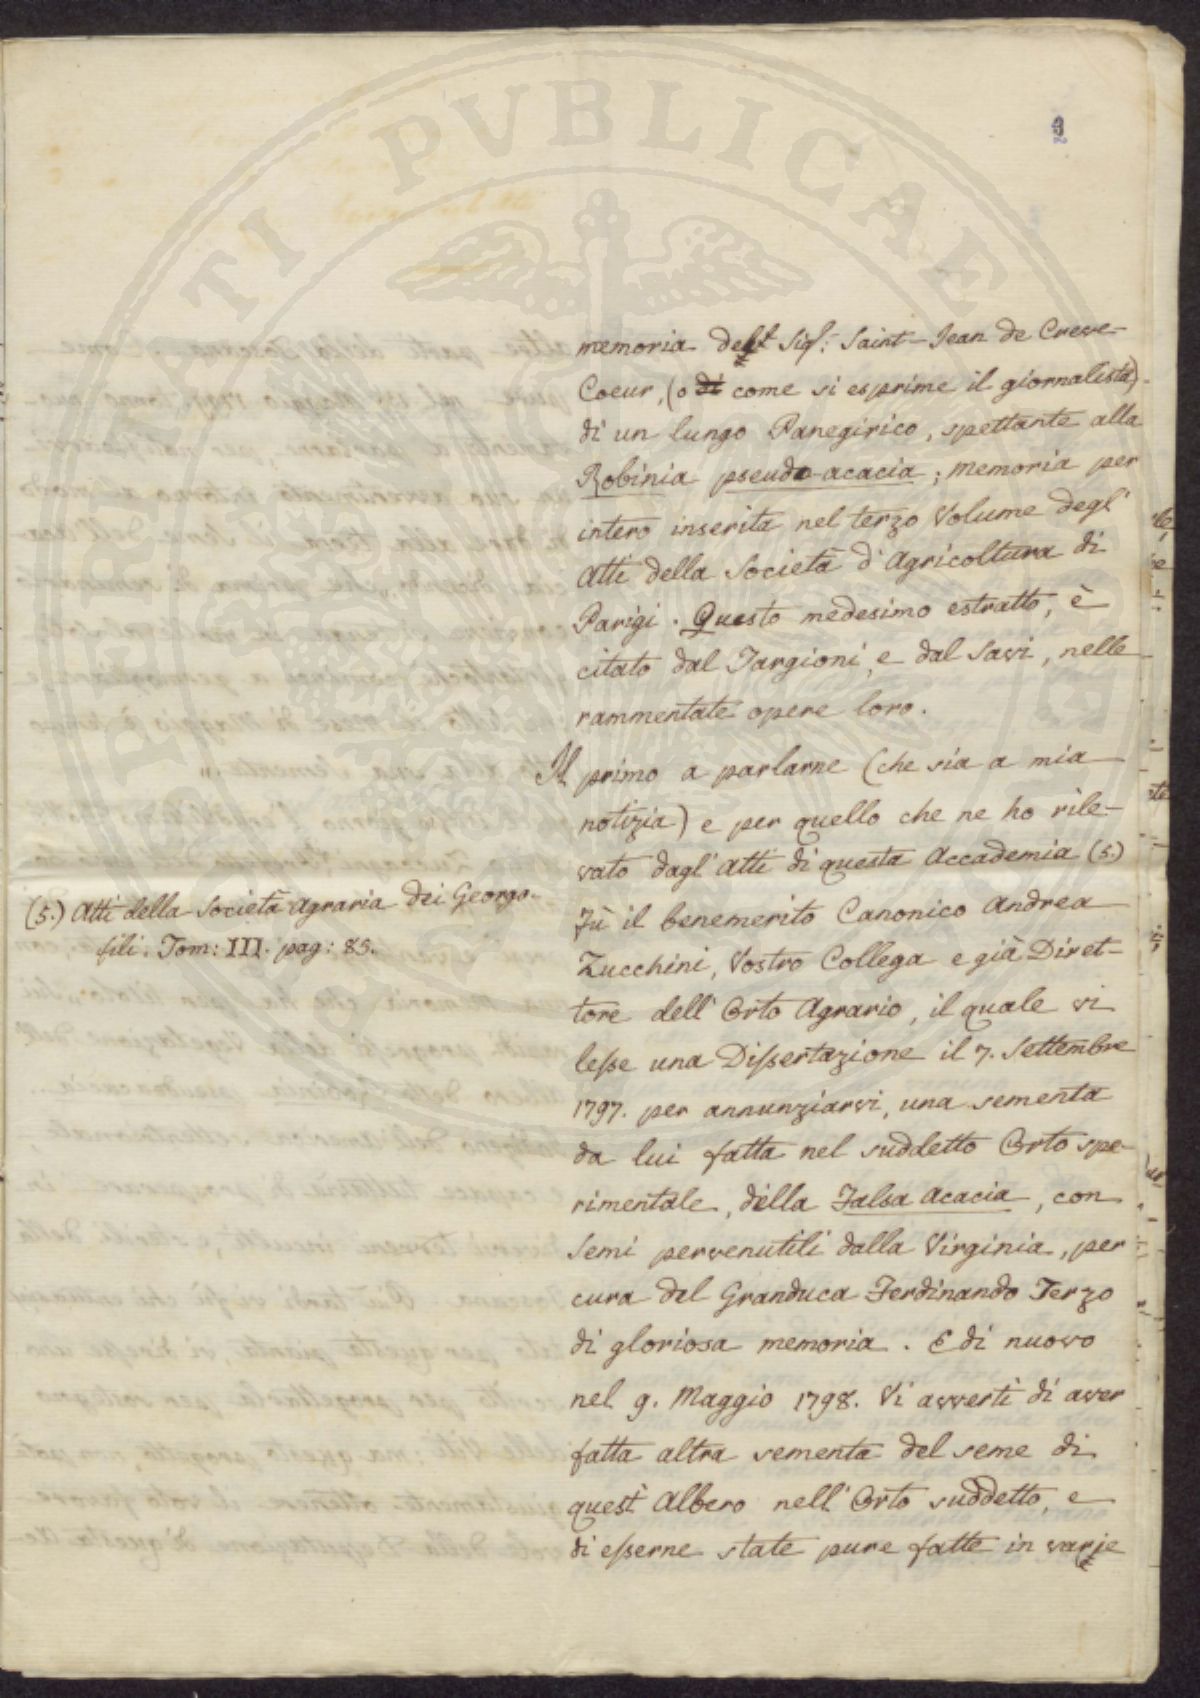 PERITATI PVBLICAE
memoria del Sig: Saint-Jean de Creve-
Coeur, (o di come si esprime il giornalista)
di un lungo Panegirico, spettante alla
Robinia pseudo-acacia; memoria per
intero inserita nel terzo Volume degl'
Atti della Società d'Agricoltura di
Parigi. Questo medesimo estratto, è
citato dal Targioni, e dal Savi, nelle
rammentate opere loro.
Il primo a parlarne (che sia a mia
notizia) e per quello che ne ho rile-
vato dagl'Atti di questa Accademia (5.)
Fù il benemerito Canonico Andrea
Zucchini, Vostro Collega e già Diret-
tore dell'Orto Agrario, il quale vi
lesse una Dissertazione il 7. Settembre
1797. per annunziarvi, una sementa
da lui fatta nel suddetto Orto spe-
rimentale, della Falsa Acacia, con
semi pervenutili dalla Virginia, per
cura del Granduca Ferdinando Terzo
di gloriosa memoria. E di nuovo
nel 9. Maggio 1798. Vi avvertì di aver
fatta altra sementa del seme di
quest'Albero nell'Orto suddetto, e
di esserne state pure fatte in varje
(5.) Atti della Società Agraria dei Georgo-
fili. Tom: III. pag: 85.